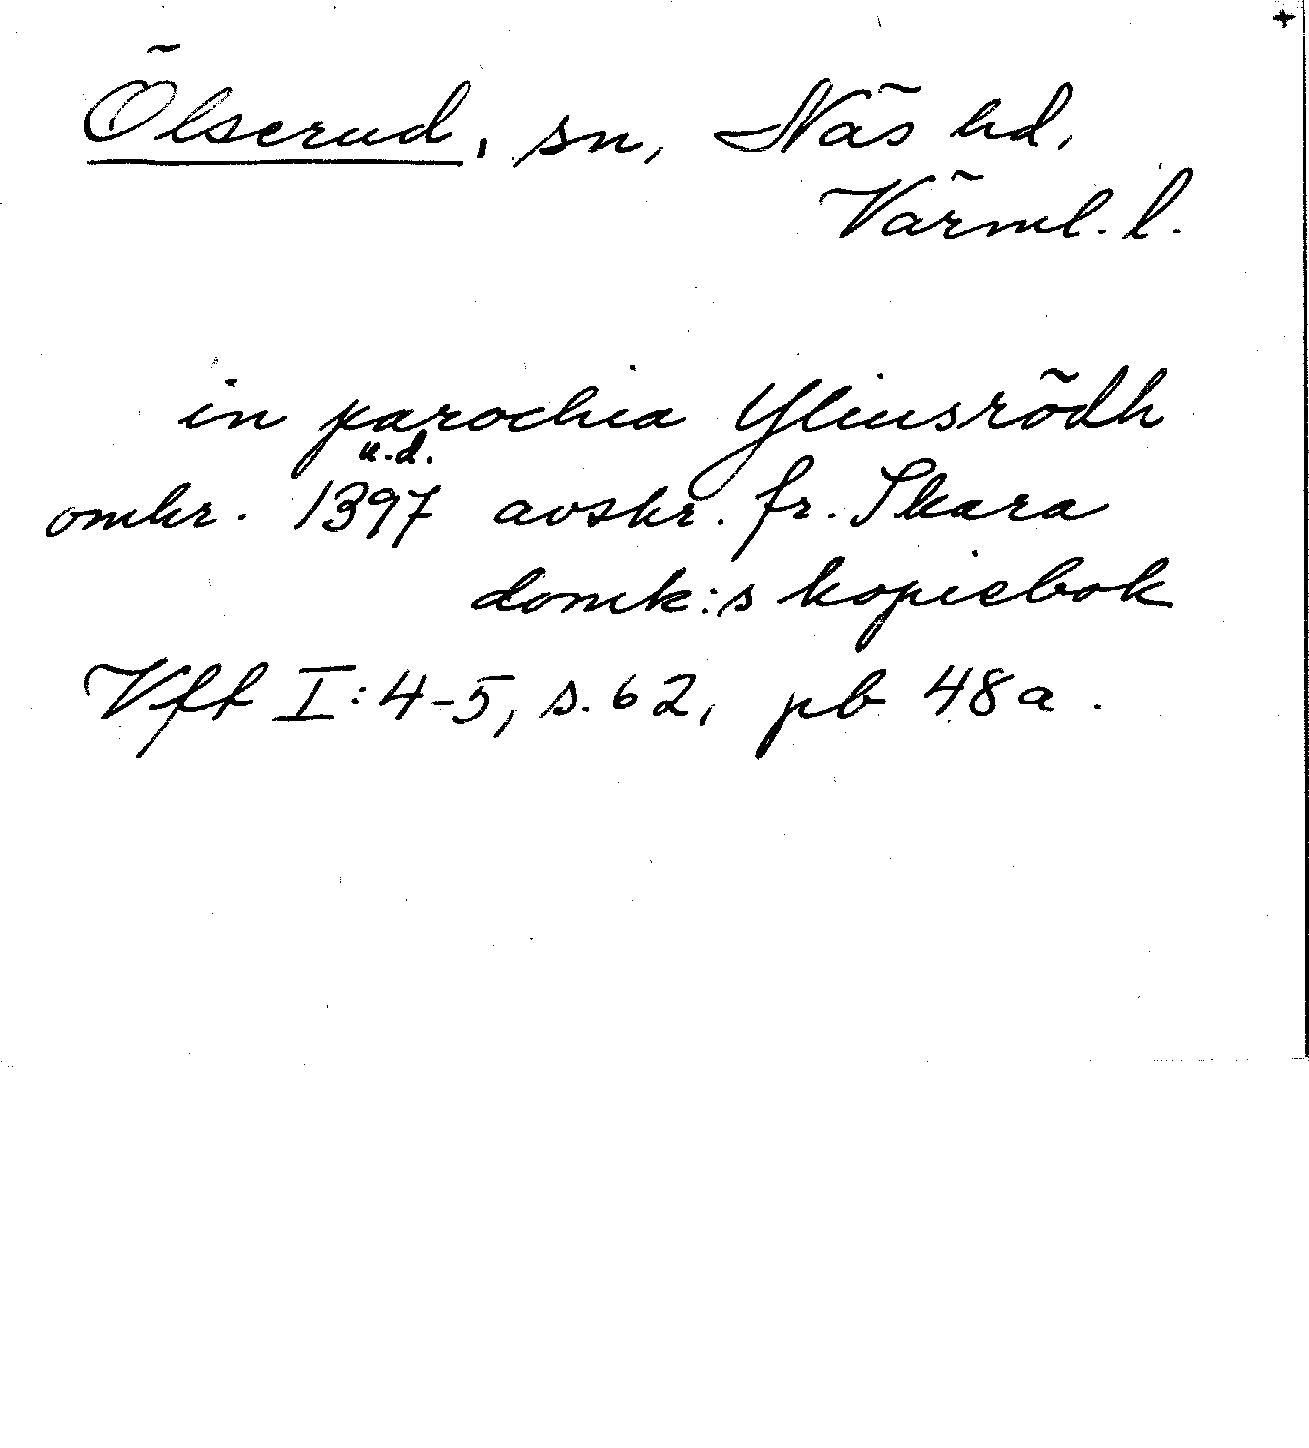 Ölserud, sn, Näs hd,
Värml. l.
in parochia Yliusrödh
u.d.
omkr. 1397 avskr. fr. Skara
domk:s kopiebok
Vft I:4-5, s. 62, pb 48a.